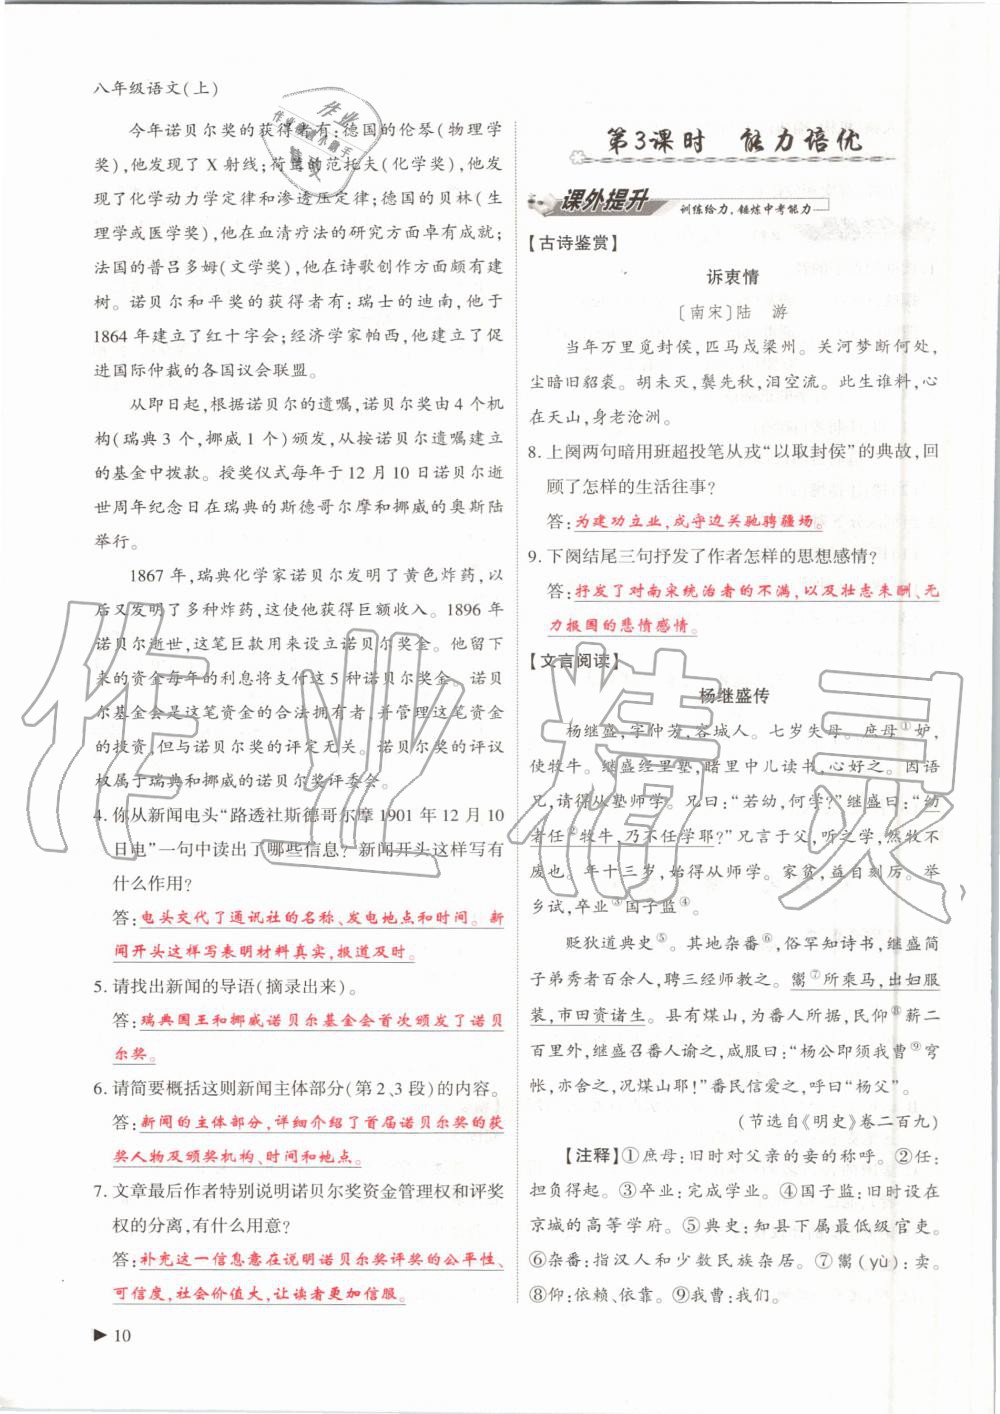 八年级语文(上)
今年诺贝尔奖的获得者有:德国的伦琴(物理学
奖),他发现了 X 射线;荷兰的范托夫(化学奖),他发
现了化学动力学定律和渗透压定律;德国的贝林(生
理学或医学奖),他在血清疗法的研究方面卓有成就;
法国的普吕多姆(文学奖),他在诗歌创作方面颇有建
树。诺贝尔和平奖的获得者有:瑞士的迪南,他于
1864 年建立了红十字会;经济学家帕西,他建立了促
进国际仲裁的各国议会联盟。
从即日起,根据诺贝尔的遗嘱,诺贝尔奖由 4 个机
构(瑞典 3 个,挪威 1 个)颁发,从按诺贝尔遗嘱建立
的基金中拨款。授奖仪式每年于 12 月 10 日诺贝尔逝
世周年纪念日在瑞典的斯德哥尔摩和挪威的奥斯陆
举行。
1867 年,瑞典化学家诺贝尔发明了黄色炸药,以
后又发明了多种炸药,这使他获得巨额收入。1896 年
诺贝尔逝世,这笔巨款用来设立诺贝尔奖金。他留下
来的资金每年的利息将支付这 5 种诺贝尔奖金。诺贝
尔基金会是这笔资金的合法拥有者,并管理这笔资金
的投资,但与诺贝尔奖的评定无关。诺贝尔奖的评议
权属于瑞典和挪威的诺贝尔奖评委会。
4. 你从新闻电头“路透社斯德哥尔摩 1901 年 12 月 10
日电”一句中读出了哪些信息?新闻开头这样写有
什么作用?
答:电头交代了通讯社的名称、发电地点和时间。新
闻开头这样写表明材料真实,报道及时。
5. 请找出新闻的导语(摘录出来)。
答:瑞典国王和挪威诺贝尔基金会首次颁发了诺贝
尔奖。
6. 请简要概括这则新闻主体部分(第 2、3 段)的内容。
答:新闻的主体部分,详细介绍了首届诺贝尔奖的获
奖人物及颁奖机构、时间和地点。
7. 文章最后作者特别说明诺贝尔奖资金管理权和评奖
权的分离,有什么用意?
答:补充这一信息意在说明诺贝尔奖评奖的公平性、
可信度,社会价值大,让读者更加信服。
▶ 10
第 3 课时 能力培优
课外提升 训练给力,锤炼中考能力
【古诗鉴赏】
诉衷情
〔南宋〕陆 游
当年万里觅封侯,匹马戍梁州。关河梦断何处,
尘暗旧貂裘。胡未灭,鬓先秋,泪空流。此生谁料,心
在天山,身老沧洲。
8. 上阕两句暗用班超投笔从戎“以取封侯”的典故,回
顾了怎样的生活往事?
答:为建功立业,戍守边关驰骋疆场。
9. 下阕结尾三句抒发了作者怎样的思想感情?
答:抒发了对南宋统治者的不满,以及壮志未酬、无
力报国的悲愤感情。
【文言阅读】
杨继盛传
杨继盛,字仲芳,容城人。七岁失母。庶母①妒,
使牧牛。继盛经里塾,睹里中儿读书,心好之。因语
兄,请得从塾师学。兄曰:“若幼,何学?”继盛曰:“幼
者任②牧牛,乃不任学耶?”兄言于父,听之学,然牧不
废也。年十三岁,始得从师学。家贫,益自刻厉。举
乡试,卒业③国子监④。
贬狄道典史⑤。其地杂番⑥,俗罕知诗书,继盛简
子弟秀者百余人,聘三经师教之。鬻⑦所乘马,出妇服
装,市田资诸生。县有煤山,为番人所据,民仰⑧薪二
百里外,继盛召番人谕之,咸服曰:“杨公即须我曹⑨穹
帐,亦舍之,况煤山耶!”番民信爱之,呼曰“杨父”。
(节选自《明史》卷二百九)
【注释】①庶母:旧时对父亲的妾的称呼。②任:
担负得起。③卒业:完成学业。④国子监:旧时设在
京城的高等学府。⑤典史:知县下属最低级官吏。
⑥杂番:指汉人和少数民族杂居。⑦鬻(yù):卖。
⑧仰:依赖、依靠。⑨我曹:我们。
作业精灵